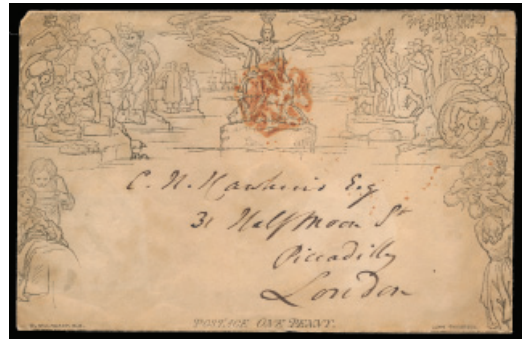 C. H. Hawkins Esq
31 Half Moon St
Piccadilly
London
POSTAGE ONE PENNY.